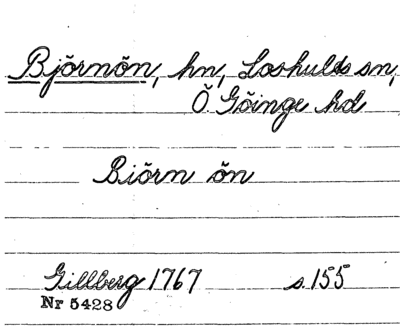 Björnön, hn, Loshults sn,
Ö Göinge hd
Biörn ön
Gillberg 1767 s. 155
Nr 5428